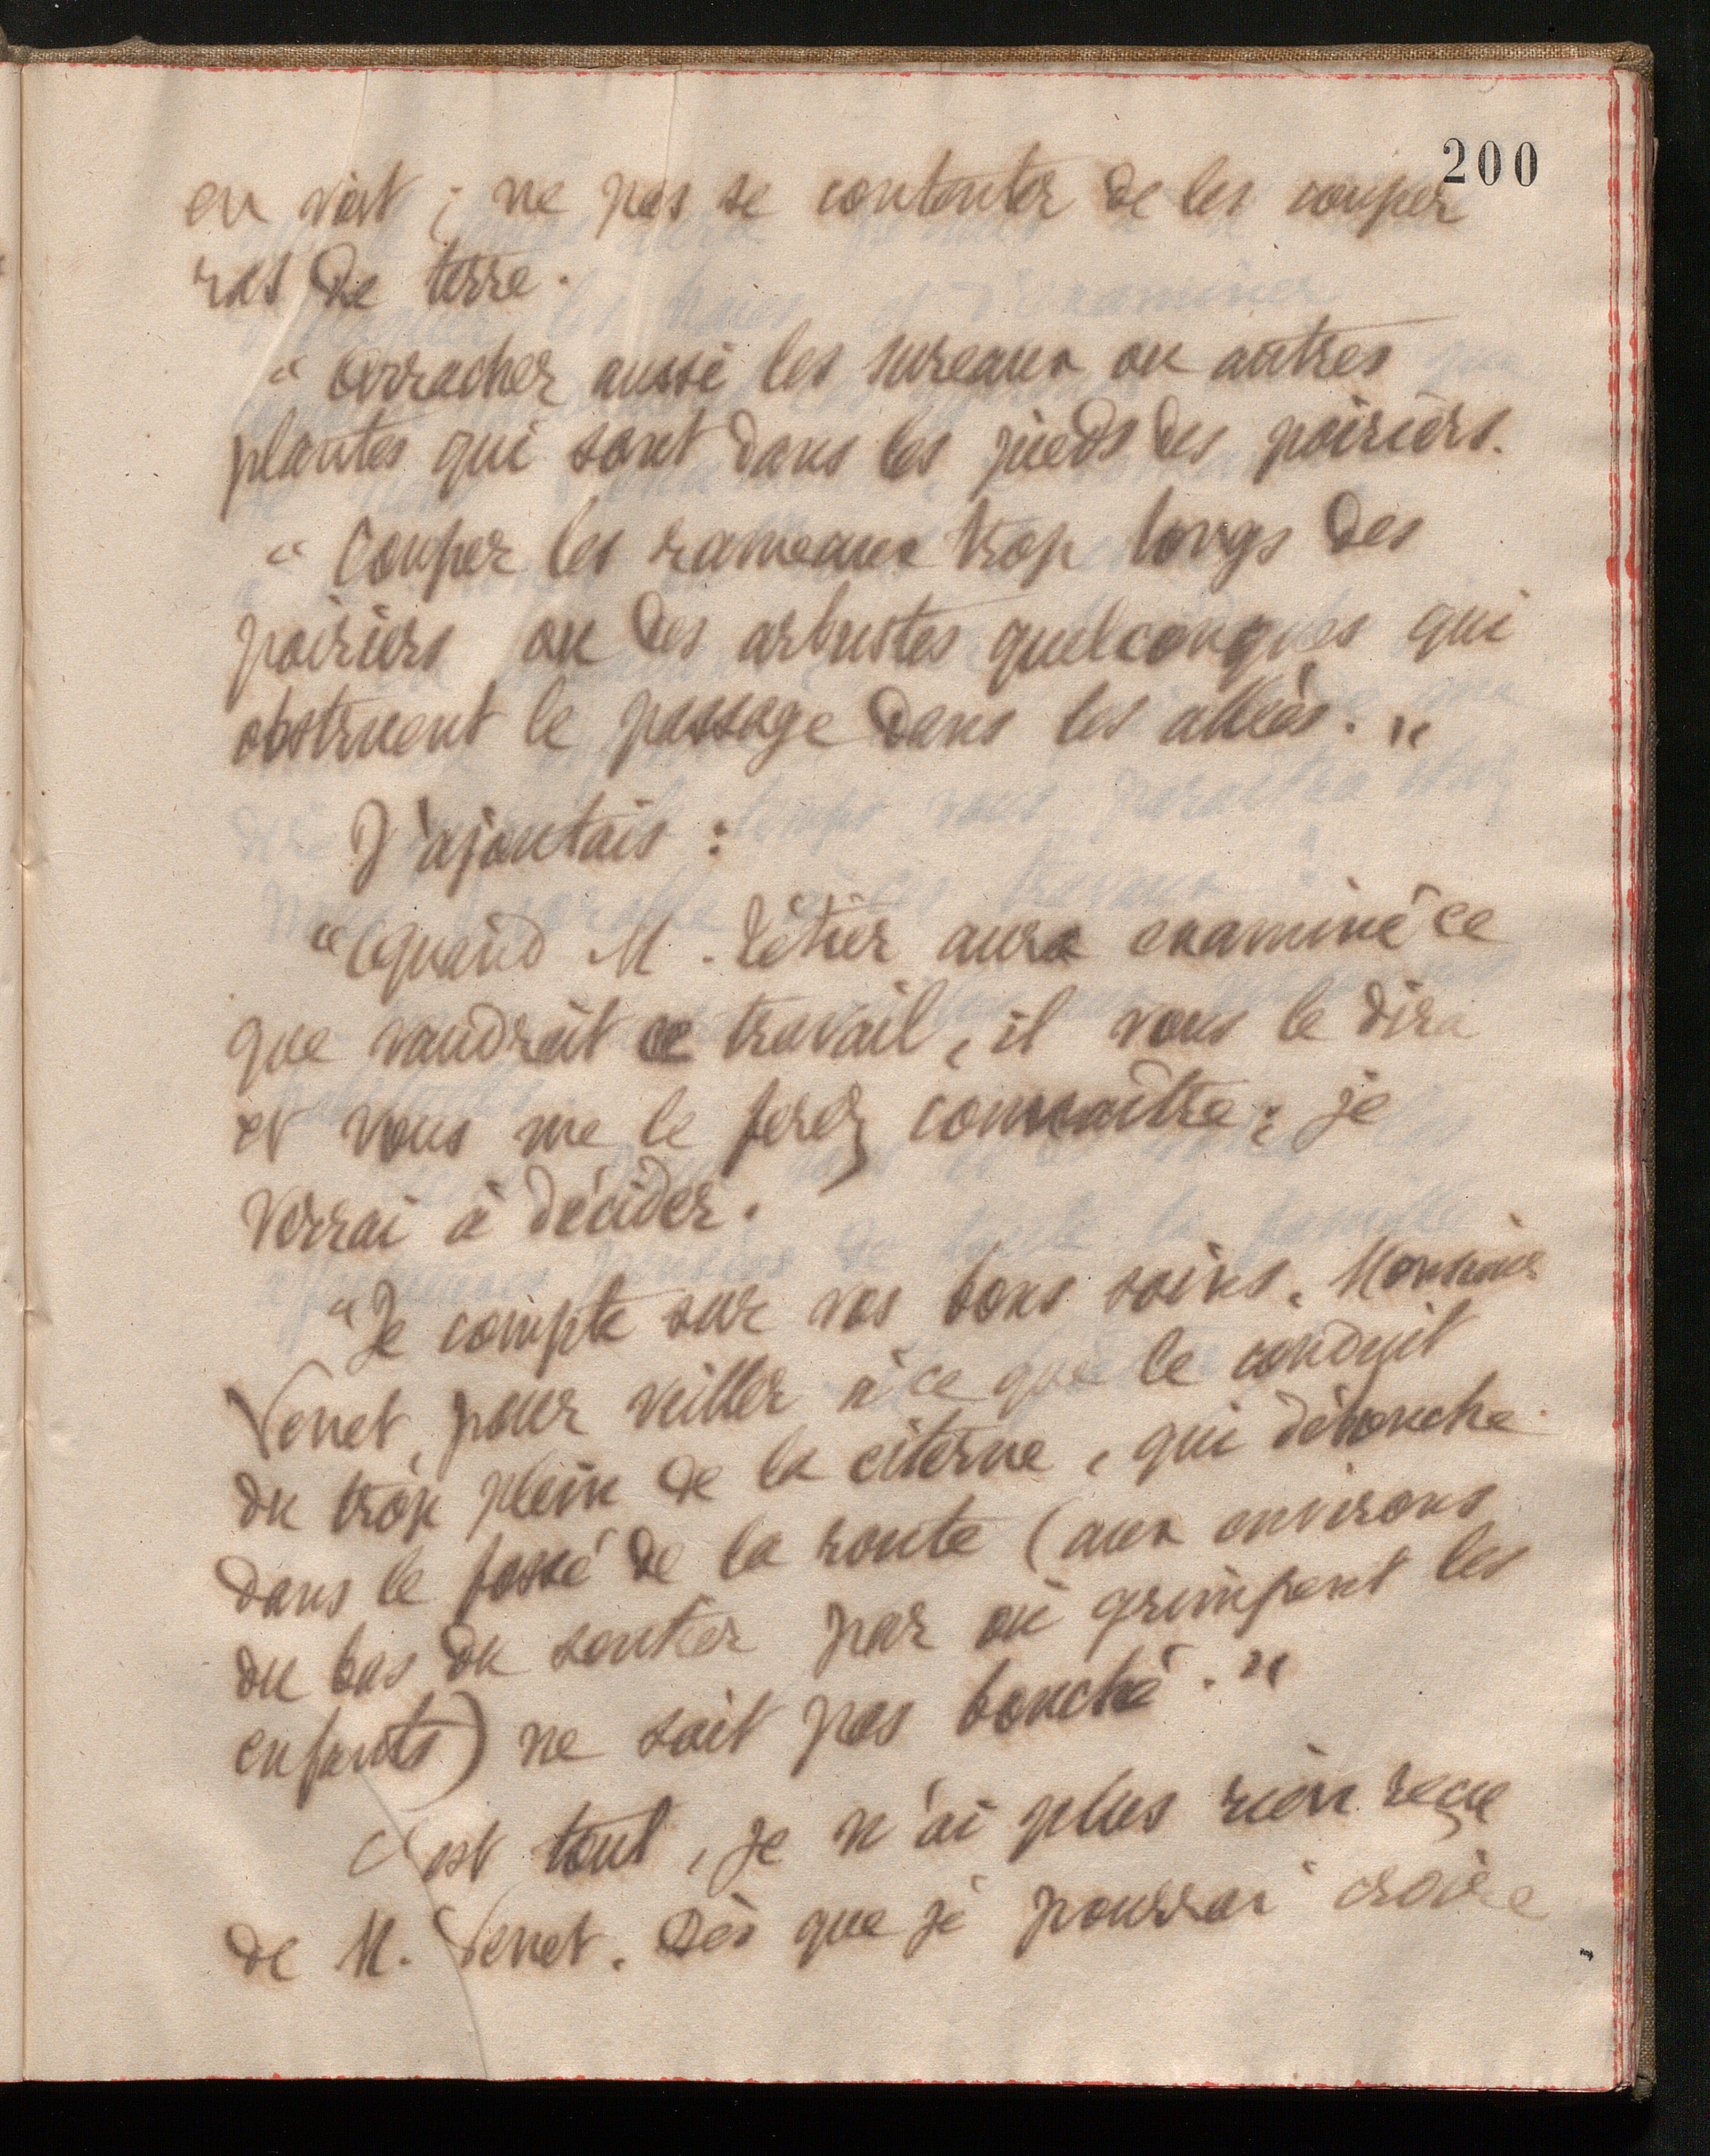 200
en voit ; ne pas se contenter de les couper
ras de terre.
" Arracher aussi les sureaux ou autres
plantes qui sont dans les pieds des poiriers.
" Couper les rameaux trop longs des
poiriers ou des arbustes quelconques qui
obstruent le passage dans les allées. "
J'ajoutais :
" Quand M. Létier aura examiné ce
que vaudrait ce travail, il vous le dira
et vous me le ferez connaître ; je
verrai à décider.
" Je compte sur vos bons soins, Monsieur
Venet, pour veiller à ce que le conduit
du trop plein de la citerne, qui débouche
dans le fossé de la route (aux environs
du bas du sentier par où grimpent les
enfants) ne soit pas bouché. "
C'est tout, je n'ai plus rien reçu
de M. Venet. Dès que je pourrai croire